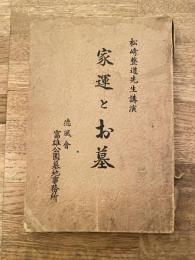 松崎整道先生講演
家運とお墓
徳風會
富雄公園墓地事務所